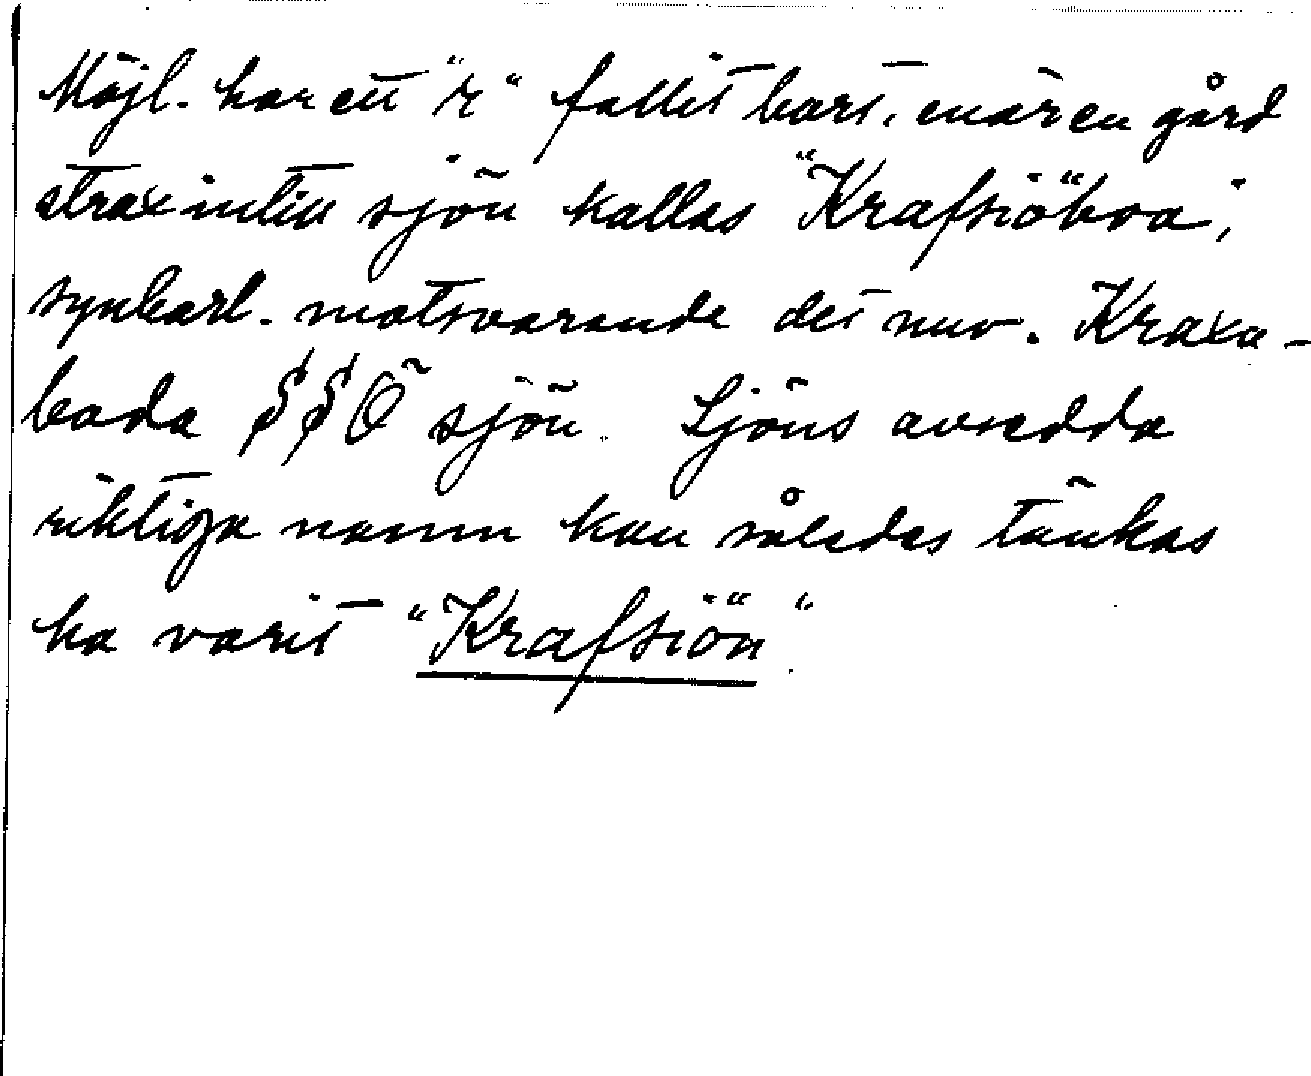 Möjl. har ett "r" fallit bort, enär en gård
strax intill sjön kallas "Krafsiöboa",
synbarl. motsvarande det nuv. Kraxa-
boda SSÖ sjön. Sjöns avsedda
riktiga namn kan således tänkas
ha varit "Krafsiön".